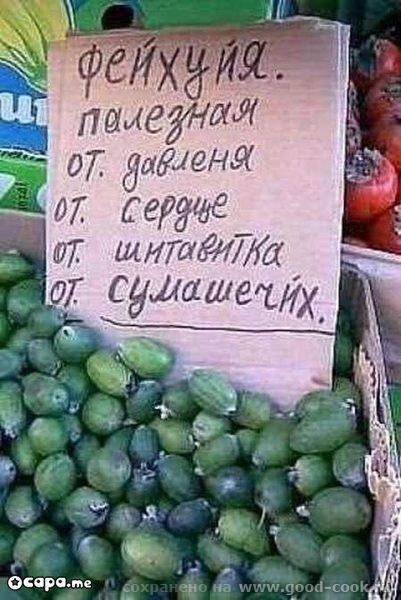 Фейхуйя.
палезная
от. давленя
от. сердце
от. шитавитка
от. сумашечйх.
сара.me
сохранено на www.good-cook.ru